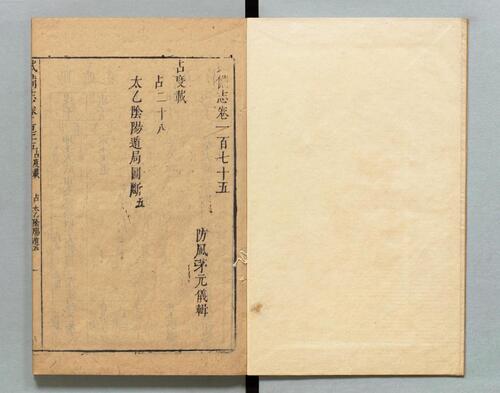 備志卷一百七十五
防風茅元儀輯
占度載
占二十八
太乙陰陽遁局圖斷五
武備志卷一百七十五 占度載 占 太乙陰陽遁五 一